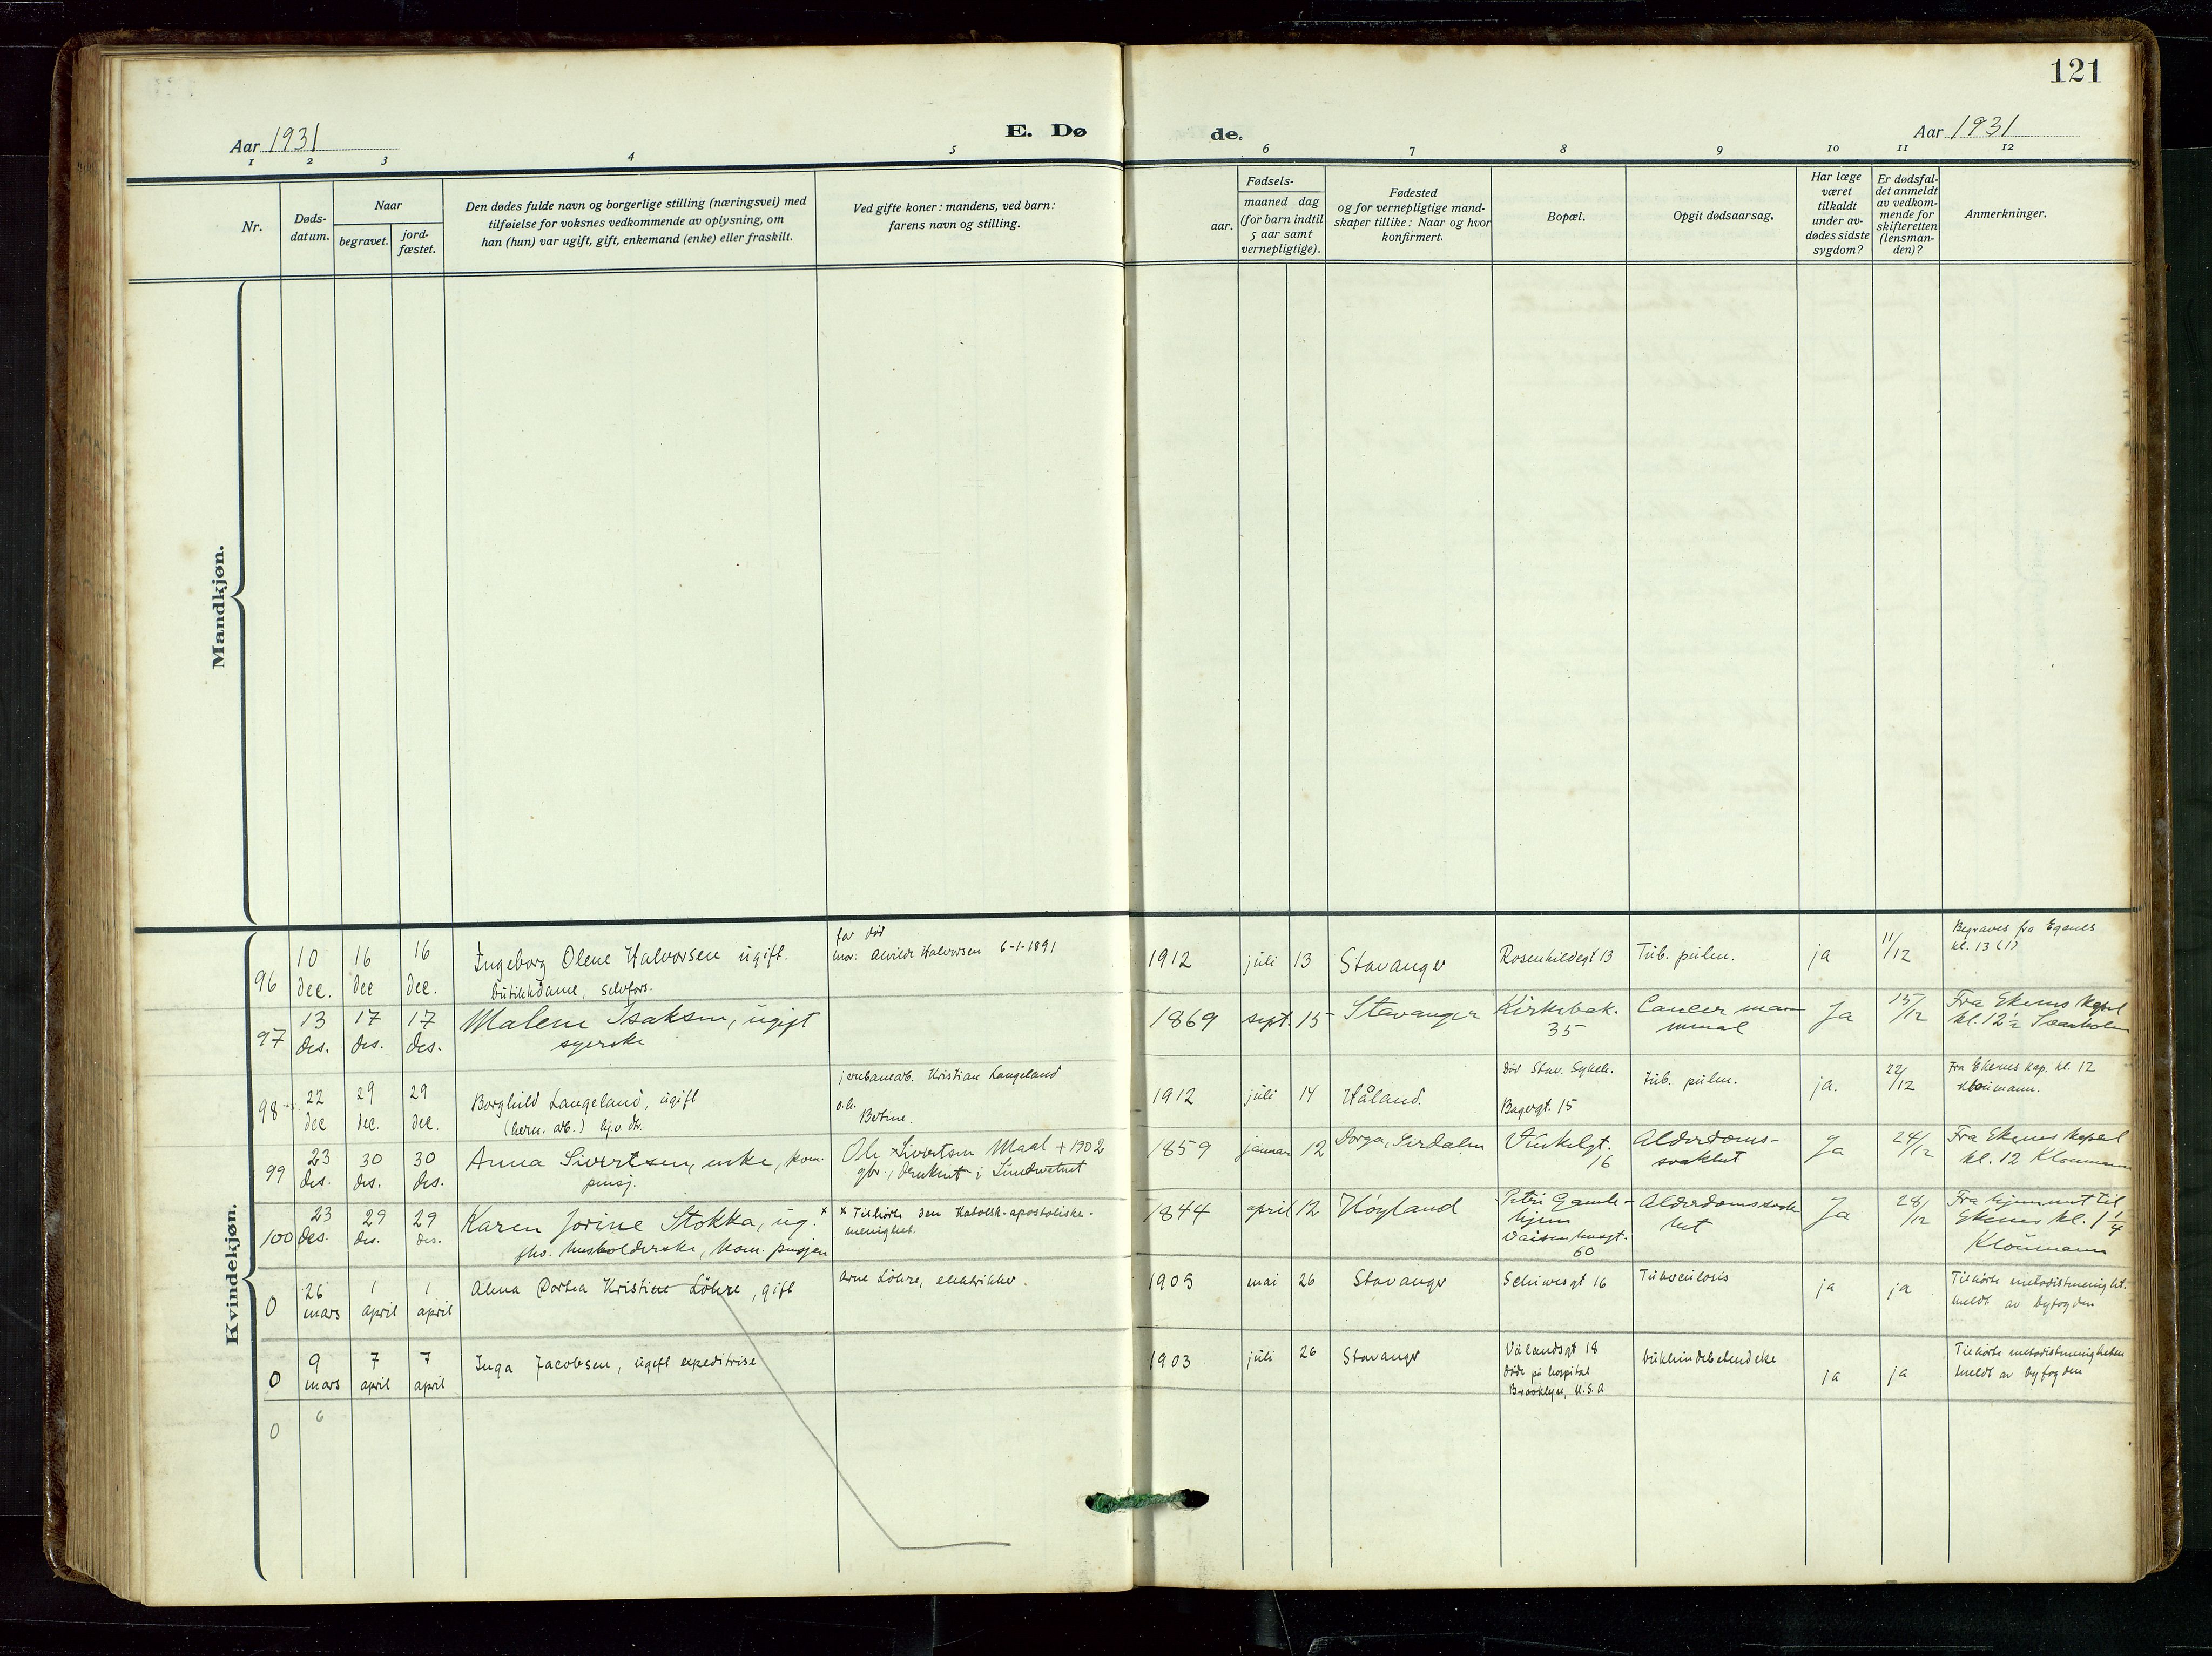 121
Aar 1931
E. Dø
de.
Aar 1931
1 2 3 4 5 6 7 8 9 10 11 12
Nr.
Døds-
datum.
Naar
begravet.
jord-
fæstet.
Den dødes fulde navn og borgerlige stilling (næringsvei) med
tilføielse for voksnes vedkommende av oplysning, om
han (hun) var ugift, gift, enkemand (enke) eller fraskilt.
Ved gifte koner: mandens, ved barn:
farens navn og stilling.
Fødsels-
aar.
maaned dag
(for barn indtil
5 aar samt
vernepligtige).
Fødested
og for vernepligtige mand-
skaper tillike: Naar og hvor
konfirmert.
Bopæl.
Opgit dødsaarsag.
Har læge
været
tilkaldt
under av-
dødes sidste
sygdom?
Er dødsfal-
det anmeldt
av vedkom-
mende for
skifteretten
(lensman-
den)?
Anmerkninger.
Mandkjøn.
Kvindekjøn.
96
10
dec.
16
dec
16
dec.
Ingeborg Olene Halvorsen ugift.
butikkdame, selvfors.
far død
mor: Alvilde Halvorsen 6-1-1891
1912 juli 13 Stavanger
Rosenkildegt 13
Tub. pulm.
ja
11/12
Begraves fra Egenes
kl. 13 (1)
97
13
des.
17
des.
17
des.
Malene Isaksen, ugift
syerske
1869 sept. 15 Stavanger
Kirkebak.
35
Cancer mam-
mal
Ja
15/12
Fra Ekenes Kapel
kl. 12 ½
98
22
dec
29
dec.
29
dec.
Borghild Langeland, ugift
(herm. arb.) hj.v. dr.
jernbanearb. Kristian Langeland
o.h.
Bertine.
1912 juli 14 Håland.
Død Stav. Sykeh.
Bagergt. 15
tub. pulm.
ja.
22/12
Fra Ekenes Kap. kl. 12
Kloumann.
99
23
des.
30
des.
30
des.
Anna Sivertsen, enke, kom.
pensj.
Ole Sivertsen Maal + 1902
gbr., druknet i
1859 januar 12 Dorga, Sirdalen
Vinkelgt.
16
Alderdoms-
svakhet
Ja
24/12
Fra Ekenes Kapel
kl. 12 Kloumann
100
23
des.
29
des.
29
des.
Karen Jorine Stokka, ug. x
fhv. husholderske, kom. pensjon
x Tilhørte den Katolsk-apostoliske-
menighet.
1844 april 12 Høyland
Petri Gamle-
hjem
Vaisenhusgt.
60
Alderdomssvak
het
Ja
28/12
Fra hjemmet til
Ekenes kl. 1 ¼
Kloumann
0
26
mars
1
april
1
april
Alma Dorthea Kristine Löhre, gift
Arne Löhre, elektriker.
1905 mai 26 Stavanger
Sehiwesgt 16
Tuberculosis
ja
ja
Tilhørte metodistmenighet.
meldt av byfogden
0
9
mars
7
april
7
april
Inga Jacobsen, ugift expeditrise
1903 juli 26 Stavanger
Vålandsgt 18
Døde på hospital
Brooklyn, U.S.A
bukhindebetendelse
ja
ja
Tilhørte metodistmenigheten
meldt av byfogden
0
6